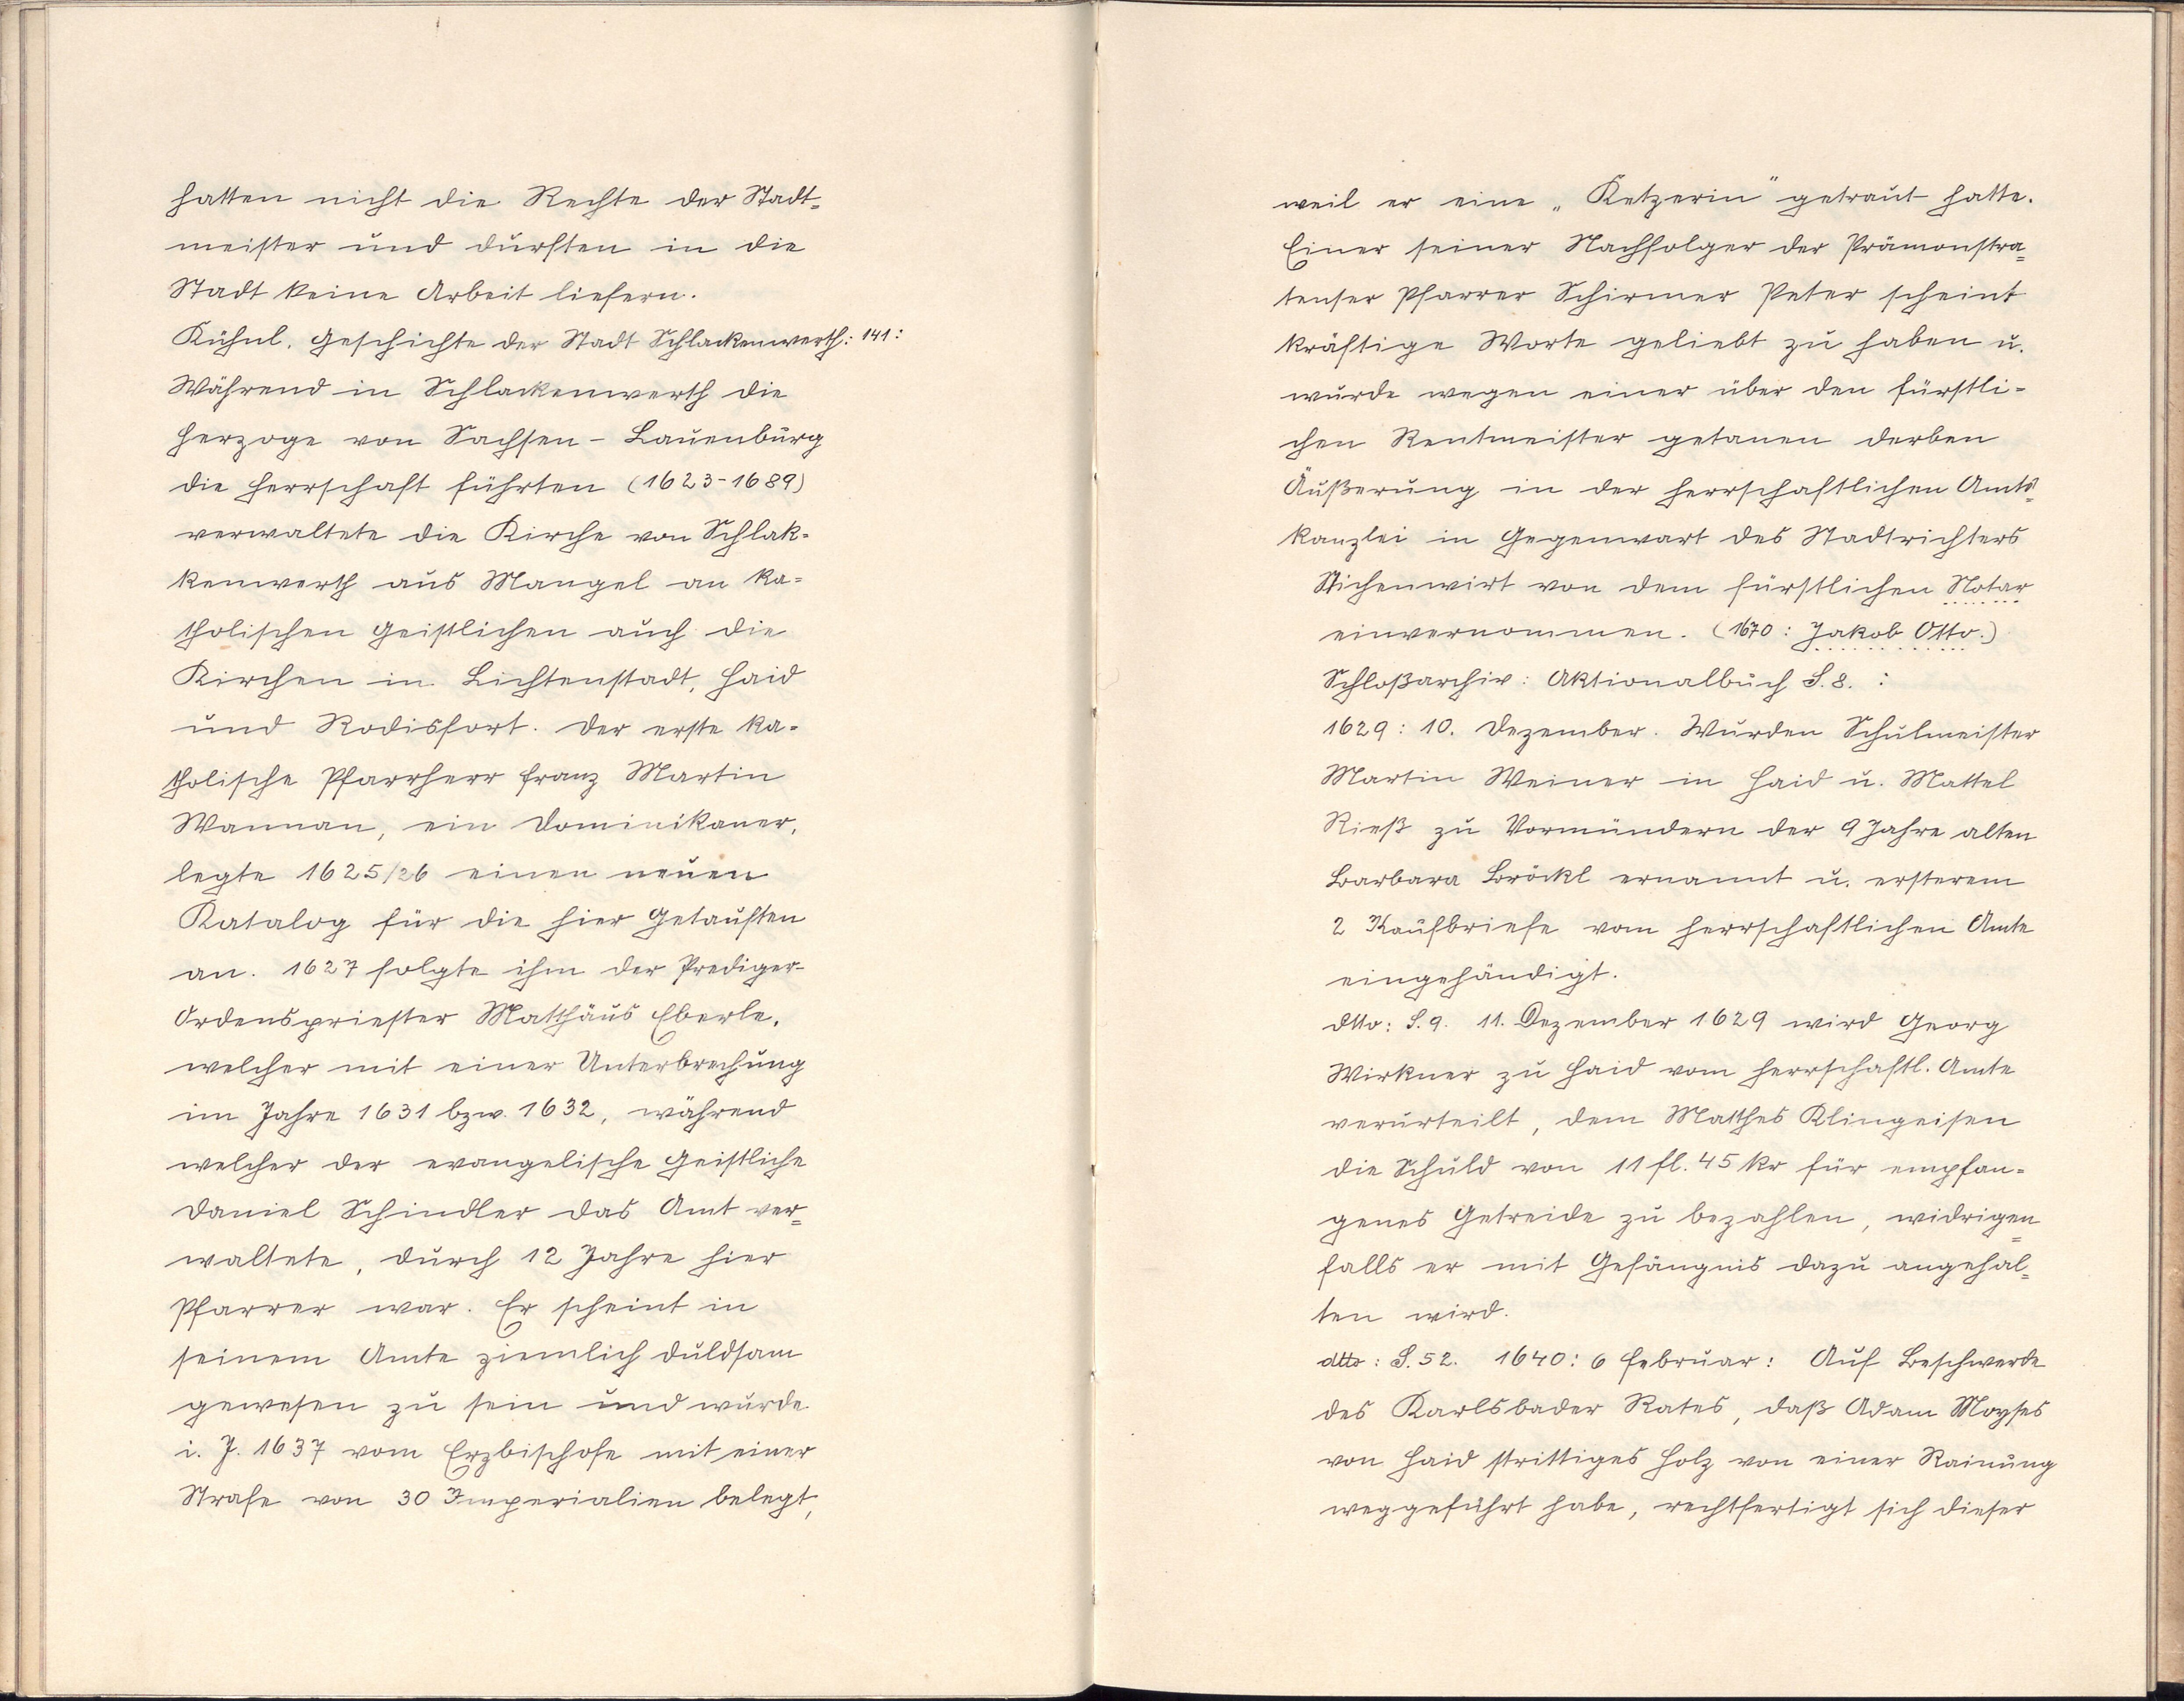 hatten nicht die Rechte der Stadt-
meister und durften in die
Stadt keine Arbeit liefern.
Kühnl. Geschichte der Stadt Schlackenwerth: 141:
Während in Schlackenwerth die
Herzoge von Sachsen - Lauenburg
die Herrschaft führten (1623-1689)
verwaltete die Kirche von Schlak-
kenwerth aus Mangel an ka-
tholischen Geistlichen auch die
Kirchen in Lichtenstadt, Haid
und Rodisfort. Der erste ka-
tholische Pfarrherr Franz Martin
Wannan, ein Dominikaner,
legte 1625/26 einen neuen
Katalog für die hier Getauften
an. 1627 folgte ihm der Prediger-
Ordenspriester Matthäus Eberle,
welcher mit einer Unterbrechung
im Jahre 1631 bzw. 1632, während
welcher der evangelische Geistliche
Daniel Schindler das Amt ver-
waltete, durch 12 Jahre hier
Pfarrer war. Er scheint in
seinem Amte ziemlich duldsam
gewesen zu sein und wurde
i. J. 1637 vom Erzbischofe mit einer
Strafe von 30 Imperialien belegt,
weil er eine „Ketzerin" getraut hatte.
Einer seiner Nachfolger der Prämonstra-
tenser Pfarrer Schirmer Peter scheint
kräftige Worte geliebt zu haben u.
wurde wegen einer über den fürstli-
chen Rentmeister getanen derben
Äußerung in der herrschaftlichen Amts-
kanzlei in Gegenwart des Stadtrichters
Stichenwirt von dem fürstlichen Notar
einvernommen. (1670: Jakob Otto.)
Schloßarchiv: Aktionalbuch S. 8. :
1629: 10. Dezember. Wurden Schulmeister
Martin Weiner in Haid u. Mattel
Rieß zu Vormündern der 9 Jahre alten
Barbara Bröckl ernannt u. ersterem
2 Kaufbriefe vom herrschaftlichen Amte
eingehändigt.
dtto: S. 9. 11. Dezember 1629 wird Georg
Wirkner zu Haid vom herrschaftl. Amte
verurteilt, dem Matthes Klingeisen
die Schuld von 11 fl. 45 kr für empfan-
genes Getreide zu bezahlen, widrigen-
falls er mit Gefängnis dazu angehal-
ten wird.
dtto: S. 52. 1640: 6 Februar: Auf Beschwerde
des Karlsbader Rates, daß Adam Moyses
von Haid strittiges Holz von einer Rainung
weggeführt habe, rechtfertigt sich dieser